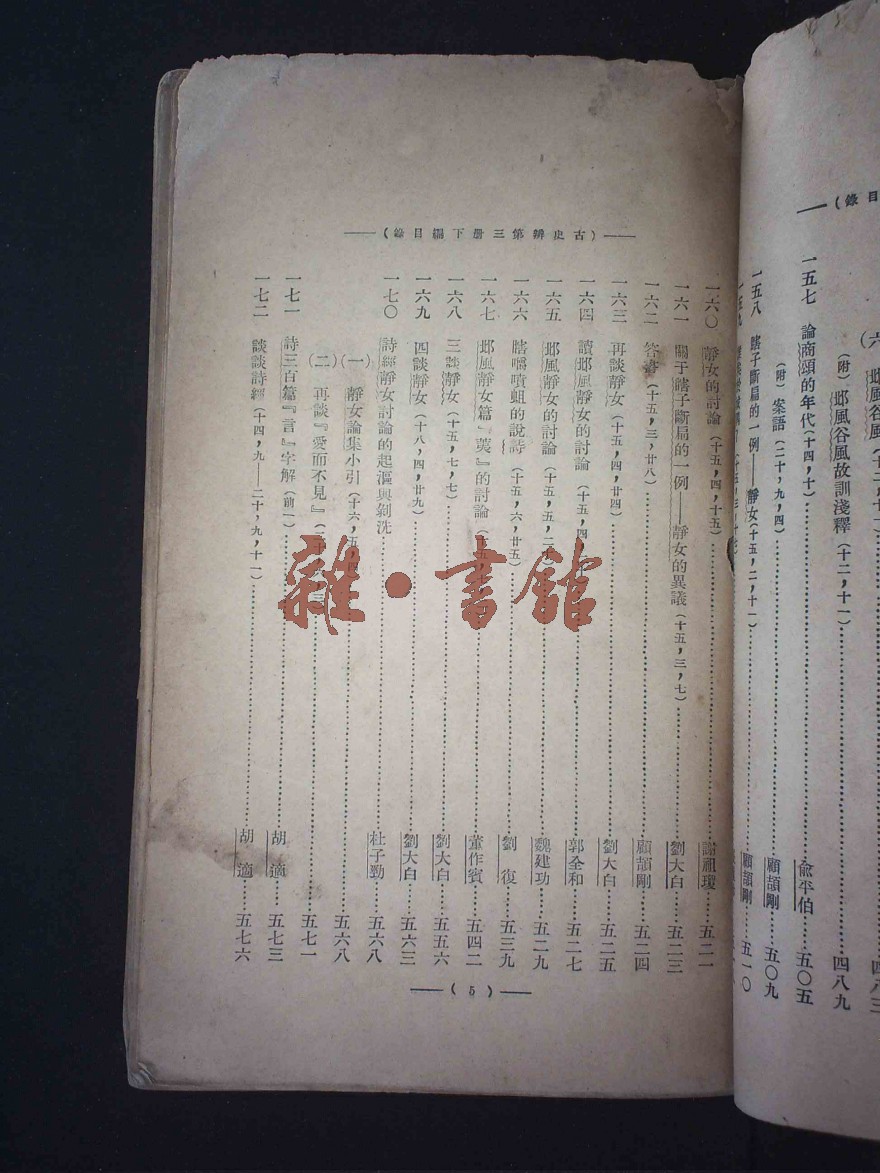 錄目
(六) 邶風谷風(十二,十一)……四八三
(附) 邶風谷風故訓淺釋(十二,十一)……四八九
一五七 論商頌的年代(十四,十)……俞平伯……五〇五
(附) 案語(二十,九,四)……顧頡剛……五〇九
一五八 瞎子斷扁的一例——靜女(十五,二,十一)……顧頡剛……五一〇
一五九
——(古史辨第三册下編目錄)——
一六〇 靜女的討論(十五,四,十五)……謝祖瓊……五二一
一六一 關于瞎子斷扁的一例——靜女的異議(十五,三,七)……劉大白……五二三
一六二 答書(十五,三,廿八)……顧頡剛……五二四
一六三 再談靜女(十五,四,廿四)……劉大白……五二五
一六四 讀邶風靜女的討論(十五,四……郭全和……五二七
一六五 邶風靜女的討論(十五,五,二十……魏建功……五二九
一六六 瞎嚼噴蛆的說詩(十五,六,廿五)……劉 復……五三九
一六七 邶風靜女篇『荑』的討論(十五……董作賓……五四二
一六八 三談靜女(十五,七,七)……劉大白……五五六
一六九 四談靜女(十八,四,廿九)……劉大白……五六三
一七〇 詩經靜女討論的起漚與剝洗……杜子勁……五六八
(一) 靜女論集小引(十六,五,四……五六八
(二) 再談『愛而不見』……五七一
一七一 詩三百篇『言』字解(前一)……胡 適……五七三
一七二 談談詩經(十四,九——二十,九,十一)……胡 適……五七六
——(5)——
雜·書館